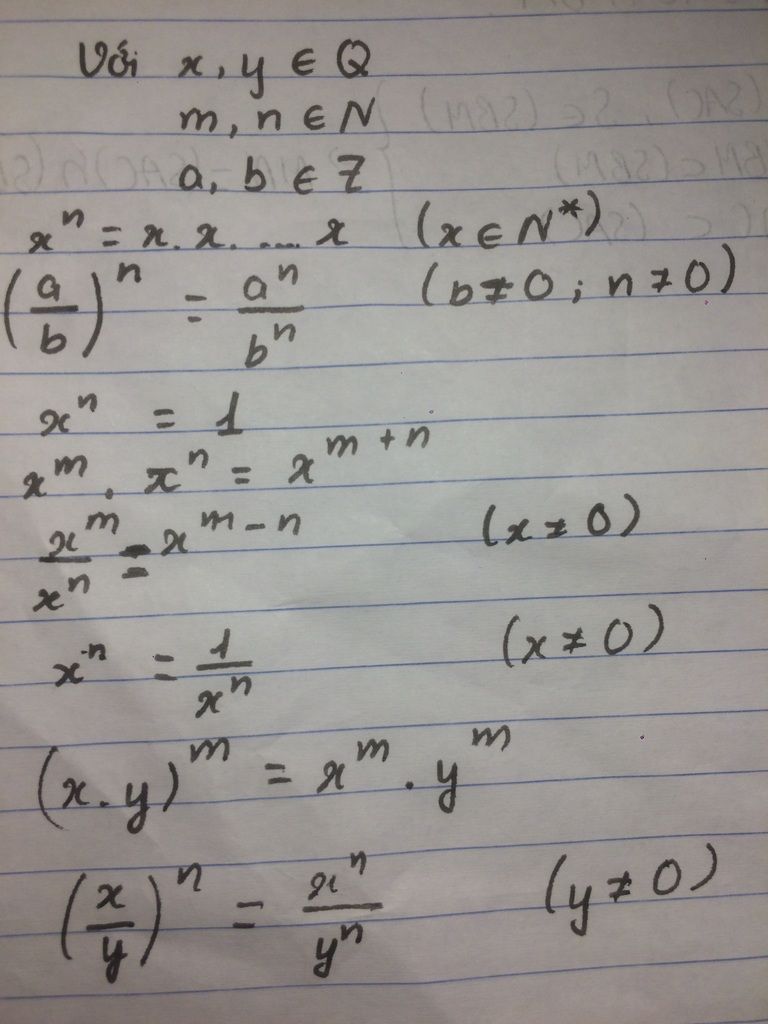 Với x, y ∈ Q
m, n ∈ N
a, b ∈ Z
xⁿ = x. x. .... x (x ∈ N*)
(a/b)ⁿ = aⁿ/bⁿ (b ≠ 0 ; n ≠ 0)
xⁿ = 1
xᵐ . xⁿ = xᵐ⁺ⁿ
xᵐ/xⁿ = xᵐ⁻ⁿ (x ≠ 0)
x⁻ⁿ = 1/xⁿ (x ≠ 0)
(x . y)ᵐ = xᵐ . yᵐ
(x/y)ⁿ = xⁿ/yⁿ (y ≠ 0)